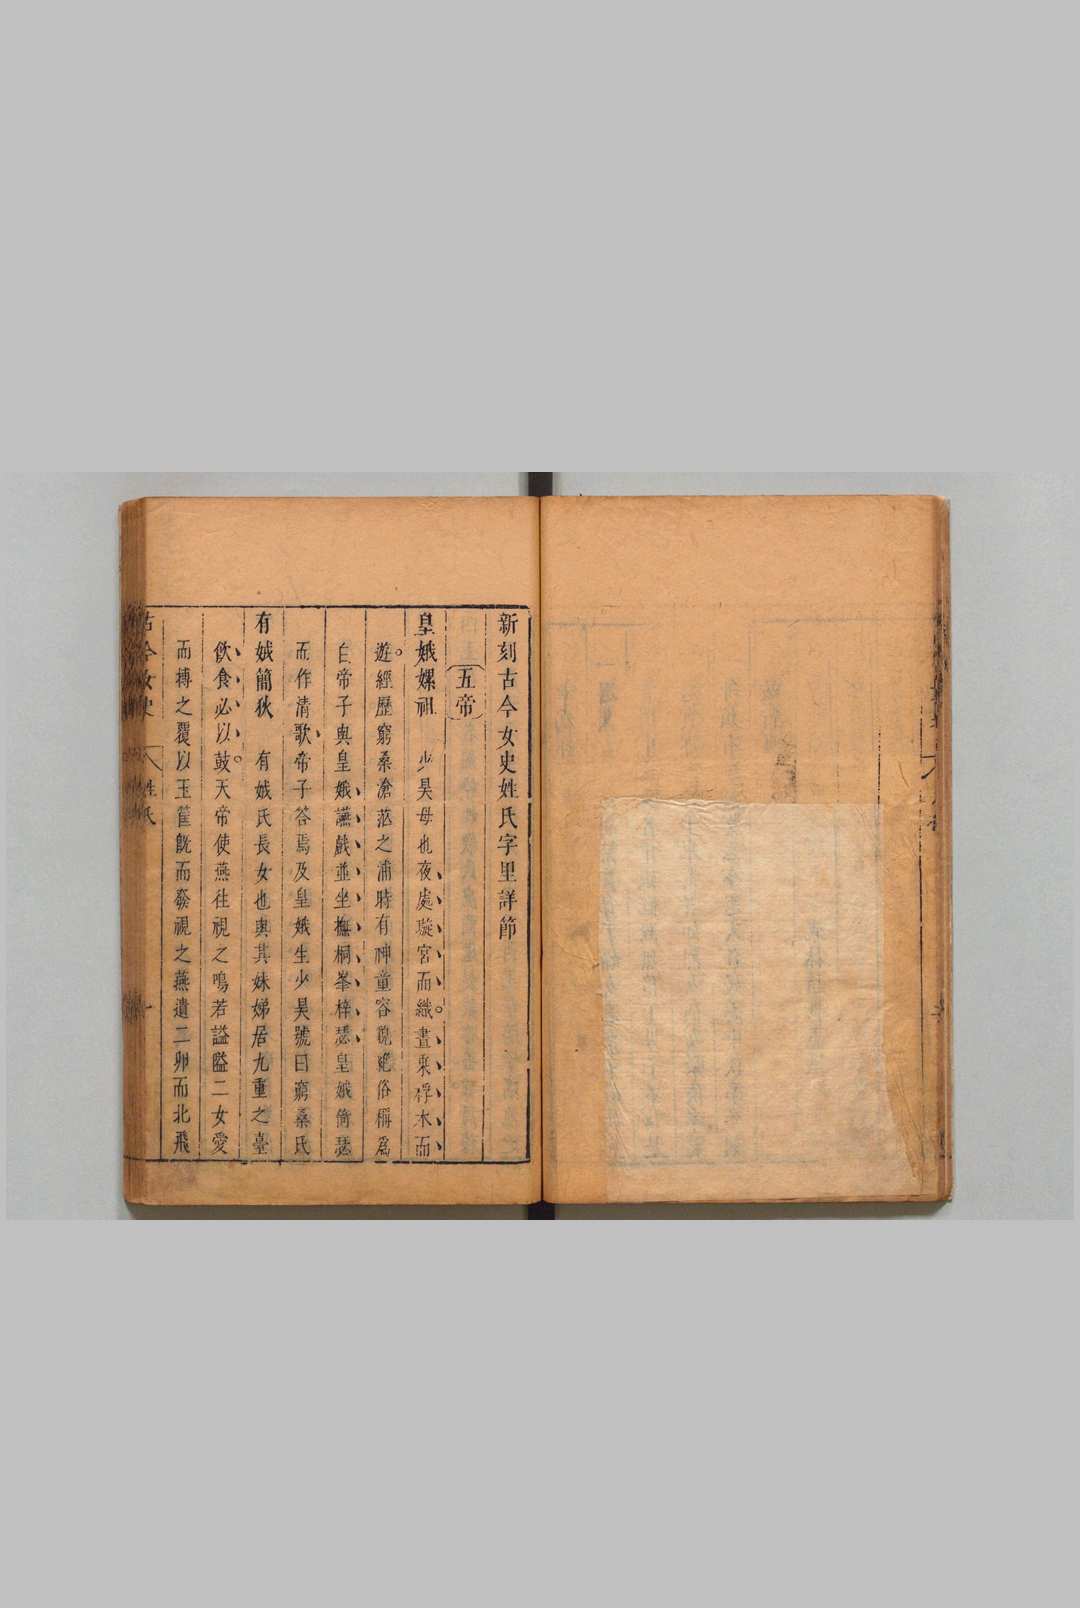 新刻古今女史姓氏字里詳節
五帝
皇娥嫘祖　少昊母也夜處璇宮而織晝乘桴木而
遊經歷窮桑滄茫之浦時有神童容貌絶俗稱爲
白帝子與皇娥讌戲並坐撫桐峯梓瑟皇娥倚瑟
而作清歌帝子答焉及皇娥生少昊號曰窮桑氏
有娀簡狄　有娀氏長女也與其妹娣居九重之臺
飲食必以鼓天帝使燕往視之鳴若謚隘二女愛
而搏之覆以玉筐旣而發視之燕遺二卵而北飛
古今女史　姓氏　一